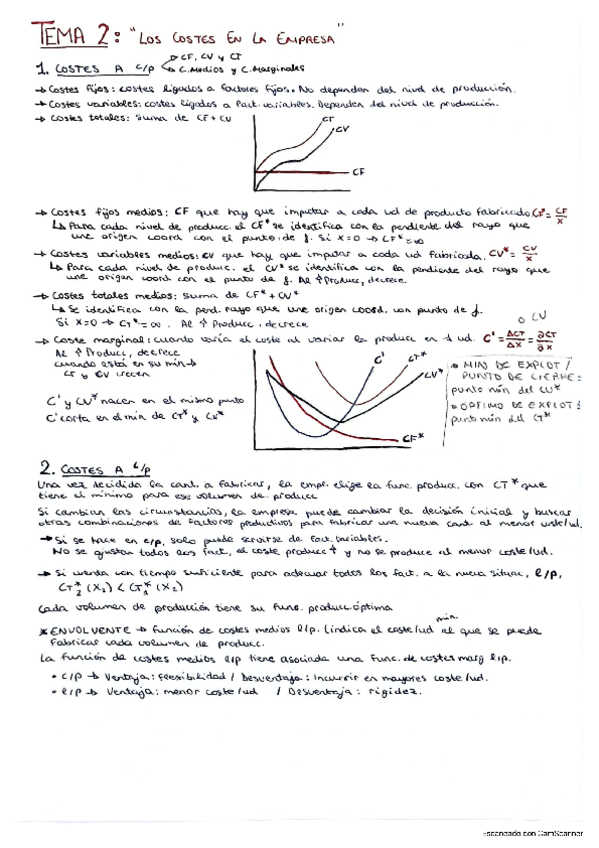 TEMA 2: "LOS COSTES EN LA EMPRESA"
1. COSTES A C/P → CF, CV y CT
→ C.Medios y C.Marginales
→ Costes fijos: costes ligados a factores fijos. No dependen del nivel de producción.
→ Costes variables: costes ligados a fact. variables. Dependen del nivel de producción.
→ Costes totales: Suma de CF+CV
CT
CV
CF
→ Costes fijos medios: CF que hay que imputar a cada ud de producto fabricado. CF* = CF/X
↳ Para cada nivel de producc. el CF* se identifica con la pendiente del rayo que
une origen coord con el punto de f. Si X=0 → CF*=∞
→ Costes variables medios: CV que hay que imputar a cada ud fabricada. CV* = CV/X
↳ Para cada nivel de producc. el CV* se identifica con la pendiente del rayo que
une origen coord con el punto de f. Al ↑ Produc, decrece.
→ Costes totales medios: Suma de CF*+CV*
↳ Se identifica con la pend. rayo que une origen coord. con punto de f.
Si X=0 → CT*=∞. Al ↑ Producc, decrece
o CV
→ Coste marginal: cuanto varía el coste al variar la producc en 1 ud. C' = ΔCT/ΔX = ∂CT/∂X
Al ↑ Producc, decrece
cuando está en su mín →
CT y CV crecen
C' y CV* nacen en el mismo punto
C' corta en el mín de CT* y CV*
C'
CT*
CV*
CF*
• MIN DE EXPLOT /
PUNTO DE CIERRE:
punto mín del CV*
• ÓPTIMO DE EXPLOT:
punto mín del CT*
2. COSTES A L/P
Una vez decidida la cant. a fabricar, la empr. elige la func. producc. con CT* que
tiene el mínimo para ese volumen de producc
Si cambian las circunstancias, la empresa puede cambiar la decisión inicial y buscar
otras combinaciones de factores productivos para fabricar una nueva cant. al menor coste/ud.
→ Si se hace en c/p, solo puede servirse de fact. variables.
No se ajustan todos los fact, el coste producc ↑ y no se produce al menor coste/ud.
→ Si cuenta con tiempo suficiente para adecuar todos los fact. a la nueva situac, l/p,
CT*2 (X2) < CT*1 (X2)
Cada volumen de producción tiene su func. producc. óptima
mín.
* ENVOLVENTE → función de costes medios l/p. Indica el coste/ud al que se puede
fabricar cada volumen de producc.
La función de costes medios l/p tiene asociada una func. de costes marg l/p.
• C/P → Ventaja: flexibilidad / Desventaja: Incurrir en mayores coste/ud.
• l/P → Ventaja: menor coste/ud / Desventaja: rigidez.
Escaneado con CamScanner